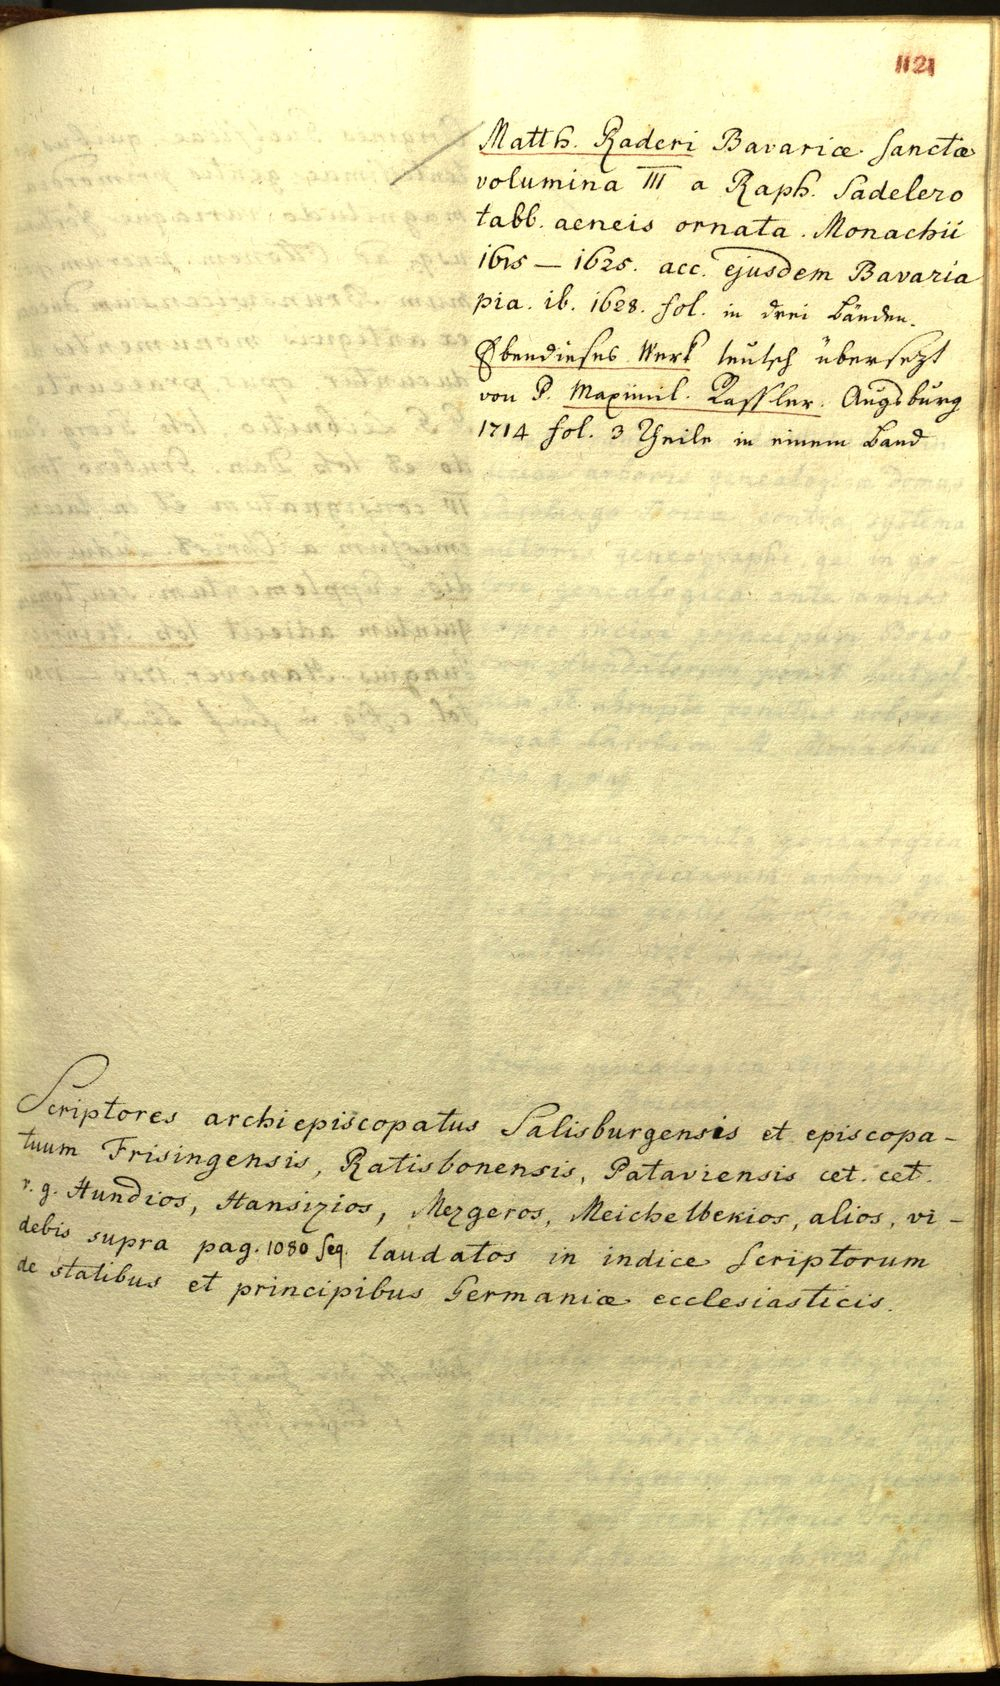 1121
Matth. Raderi Bavariæ Sanctæ
volumina III a Raph. Sadelero
tabb. aeneis ornata. Monachii
1615 — 1625. acc. ejusdem Bavaria
pia. ib. 1628. fol. in drei Bänden.
Ebendieses Werk teutsch übersezt
von P. Maximil. Rassler. Augsburg
1714 fol. 3 Theile in einem Band
Scriptores archiepiscopatus Salisburgensis et episcopa-
tuum Frisingensis, Ratisbonensis, Pataviensis cet. cet.
v. g. Hundios, Hansizios, Mezgeros, Meichelbekios, alios, vi-
debis supra pag. 1080 seq. laudatos in indice Scriptorum
de statibus et principibus Germaniæ ecclesiasticis.